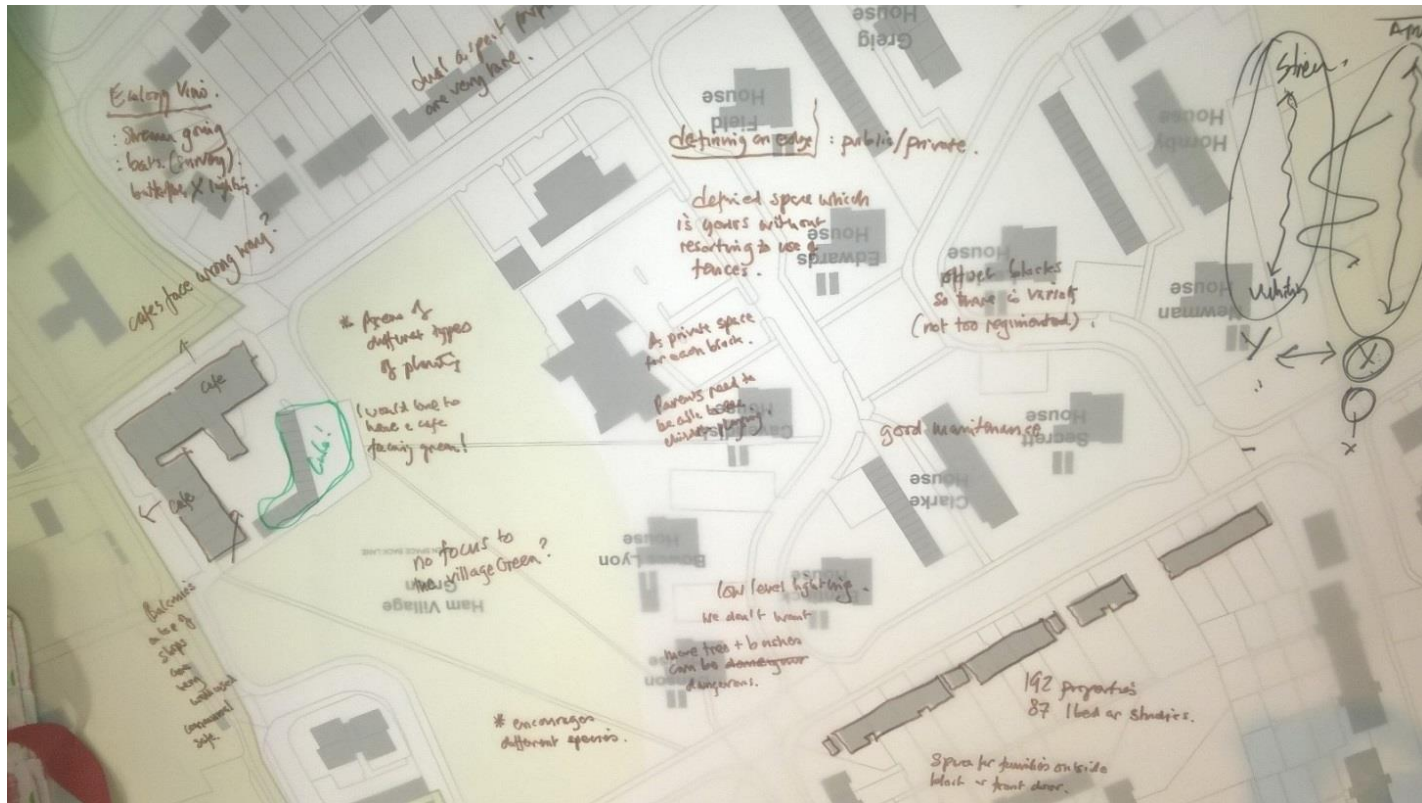 Ecology View.
: Stream going
: bats (survey).
butterflies X lighting.
are very rare.
cafes face wrong way?
cafe
cafe
Cafe!
* Areas of
different types
of planting
I would love to
have a cafe
facing green!
no focus to
the Village Green?
Ham Village
Green
* encourages
different species.
defining an edge : public/private.
defined space which
is yours without
resorting to use of
fences.
As private space
for each block.
Parents need to
be able to see
children playing.
offset blocks
so there is variety
(not too regimented).
good maintenance
low level lighting.
We don't want
more trees + bushes
can be
dangerous.
192 properties
87 1 bed or studios.
Space for families outside
block or front door.
Greig
House
Field
House
Hornby
House
Edwards
House
House
Newman
House
House
Secrett
House
Clarke
House
Bowes Lyon
House
House
House
Balconies
on top of
shops
safe.
X